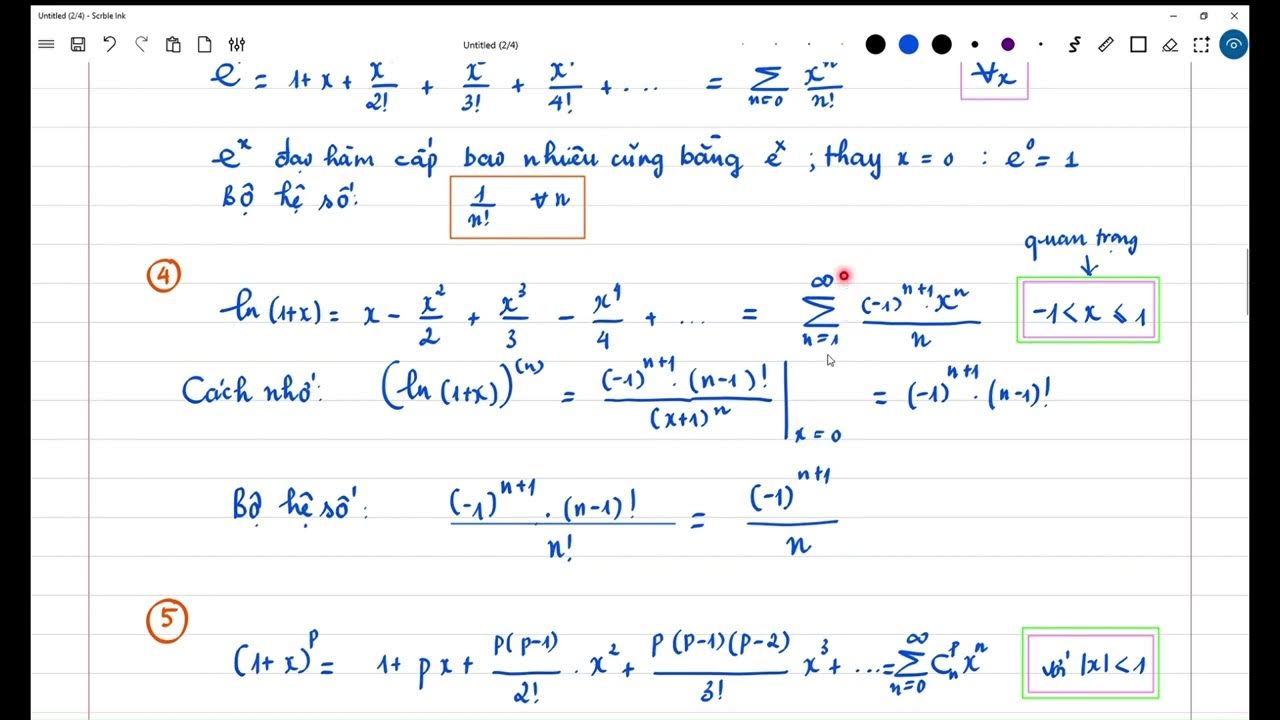 Untitled (2/4) - Scrble Ink
Untitled (2/4)
e = 1 + x + x/2! + x/3! + x/4! + ... = ∑_{n=0} x^n/n! ∀x
e^x đạo hàm cấp bao nhiêu cũng bằng e^x ; thay x = 0 : e^0 = 1
Bộ hệ số: 1/n! ∀n
quan trọng
④ ln(1+x) = x - x^2/2 + x^3/3 - x^4/4 + ... = ∑_{n=1}^{∞} (-1)^{n+1} . x^n / n -1 < x ⩽ 1
Cách nhớ: (ln(1+x))^{(n)} = (-1)^{n+1} . (n-1)! / (x+1)^n |_{x=0} = (-1)^{n+1} . (n-1)!
Bộ hệ số: (-1)^{n+1} . (n-1)! / n! = (-1)^{n+1} / n
⑤ (1+x)^p = 1 + px + p(p-1)/2! . x^2 + p(p-1)(p-2)/3! x^3 + ... = ∑_{n=0}^{∞} C_n^p x^n với |x| < 1